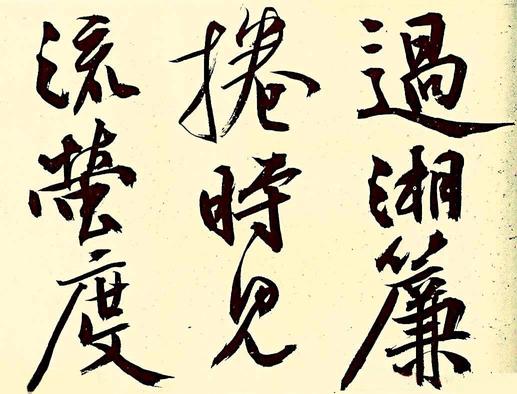 過湘簾
捲時見
流螢度